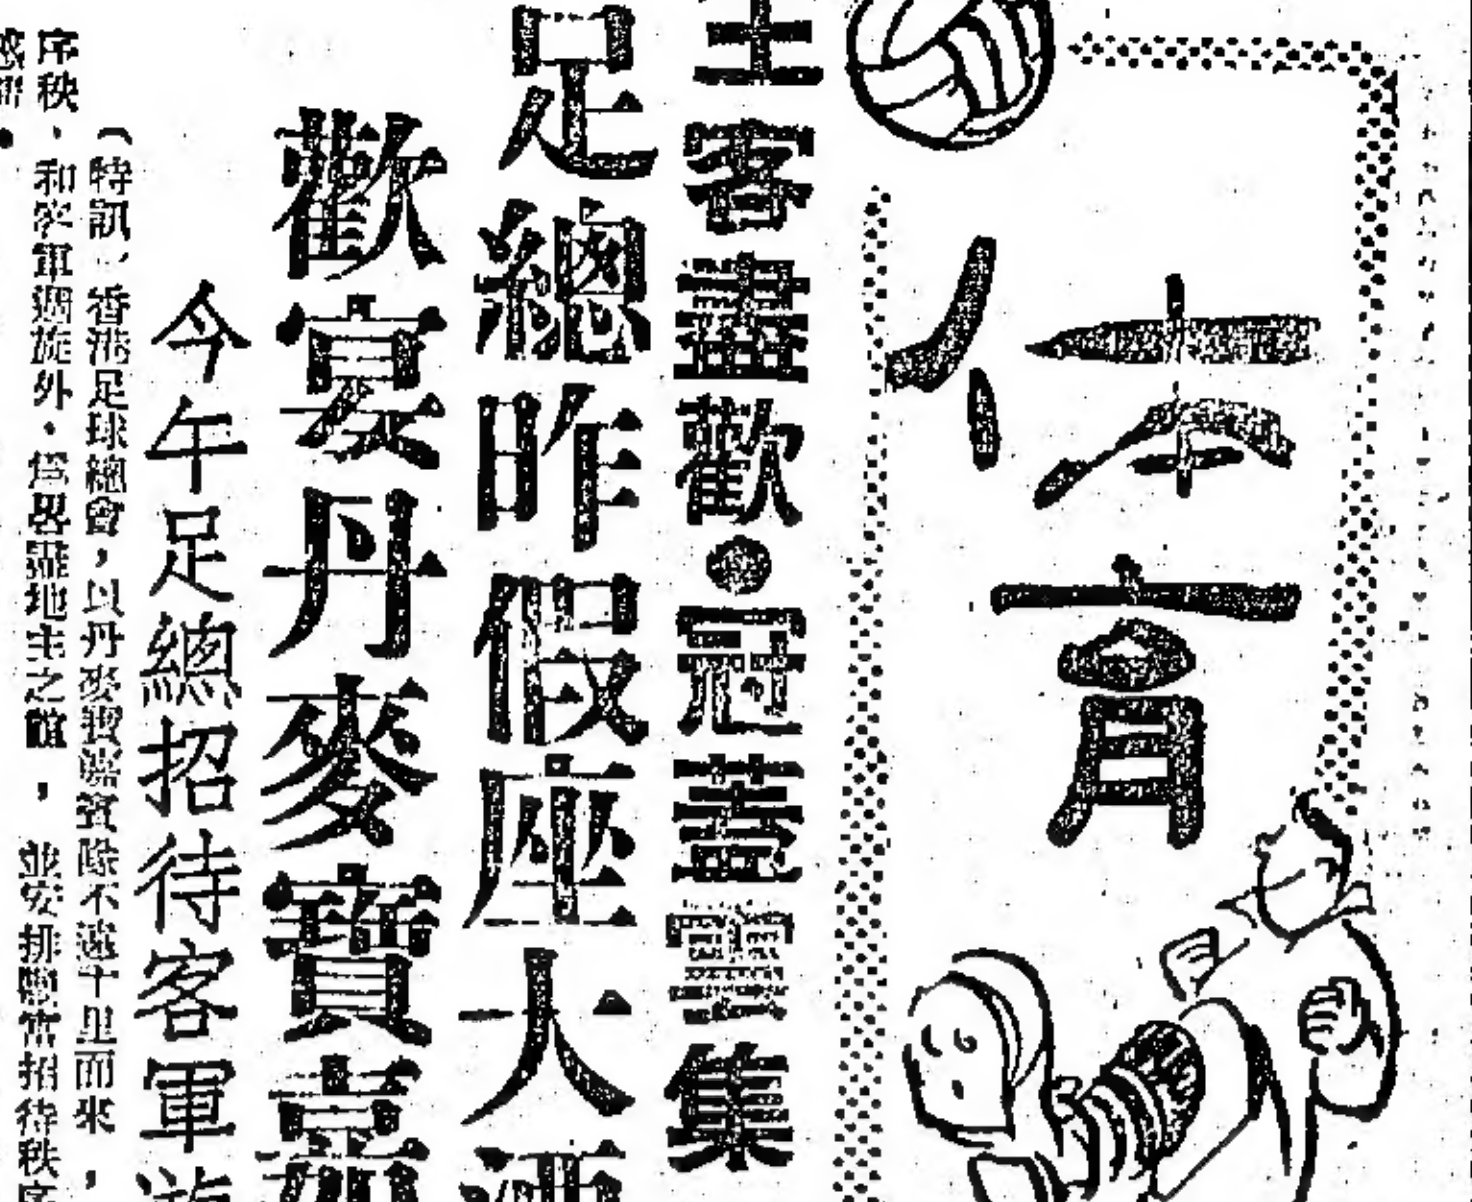 体育
主客盡歡●冠蓋雲集
足總昨假座大酒
歡宴丹麥寶嘉
今午足總招待客軍遊
（特訊）香港足球總會，以丹麥寶嘉賓隊不遠千里而來，
序秩，和客軍週旋外，爲畧盡地主之誼，並安排觀賞招待秩序